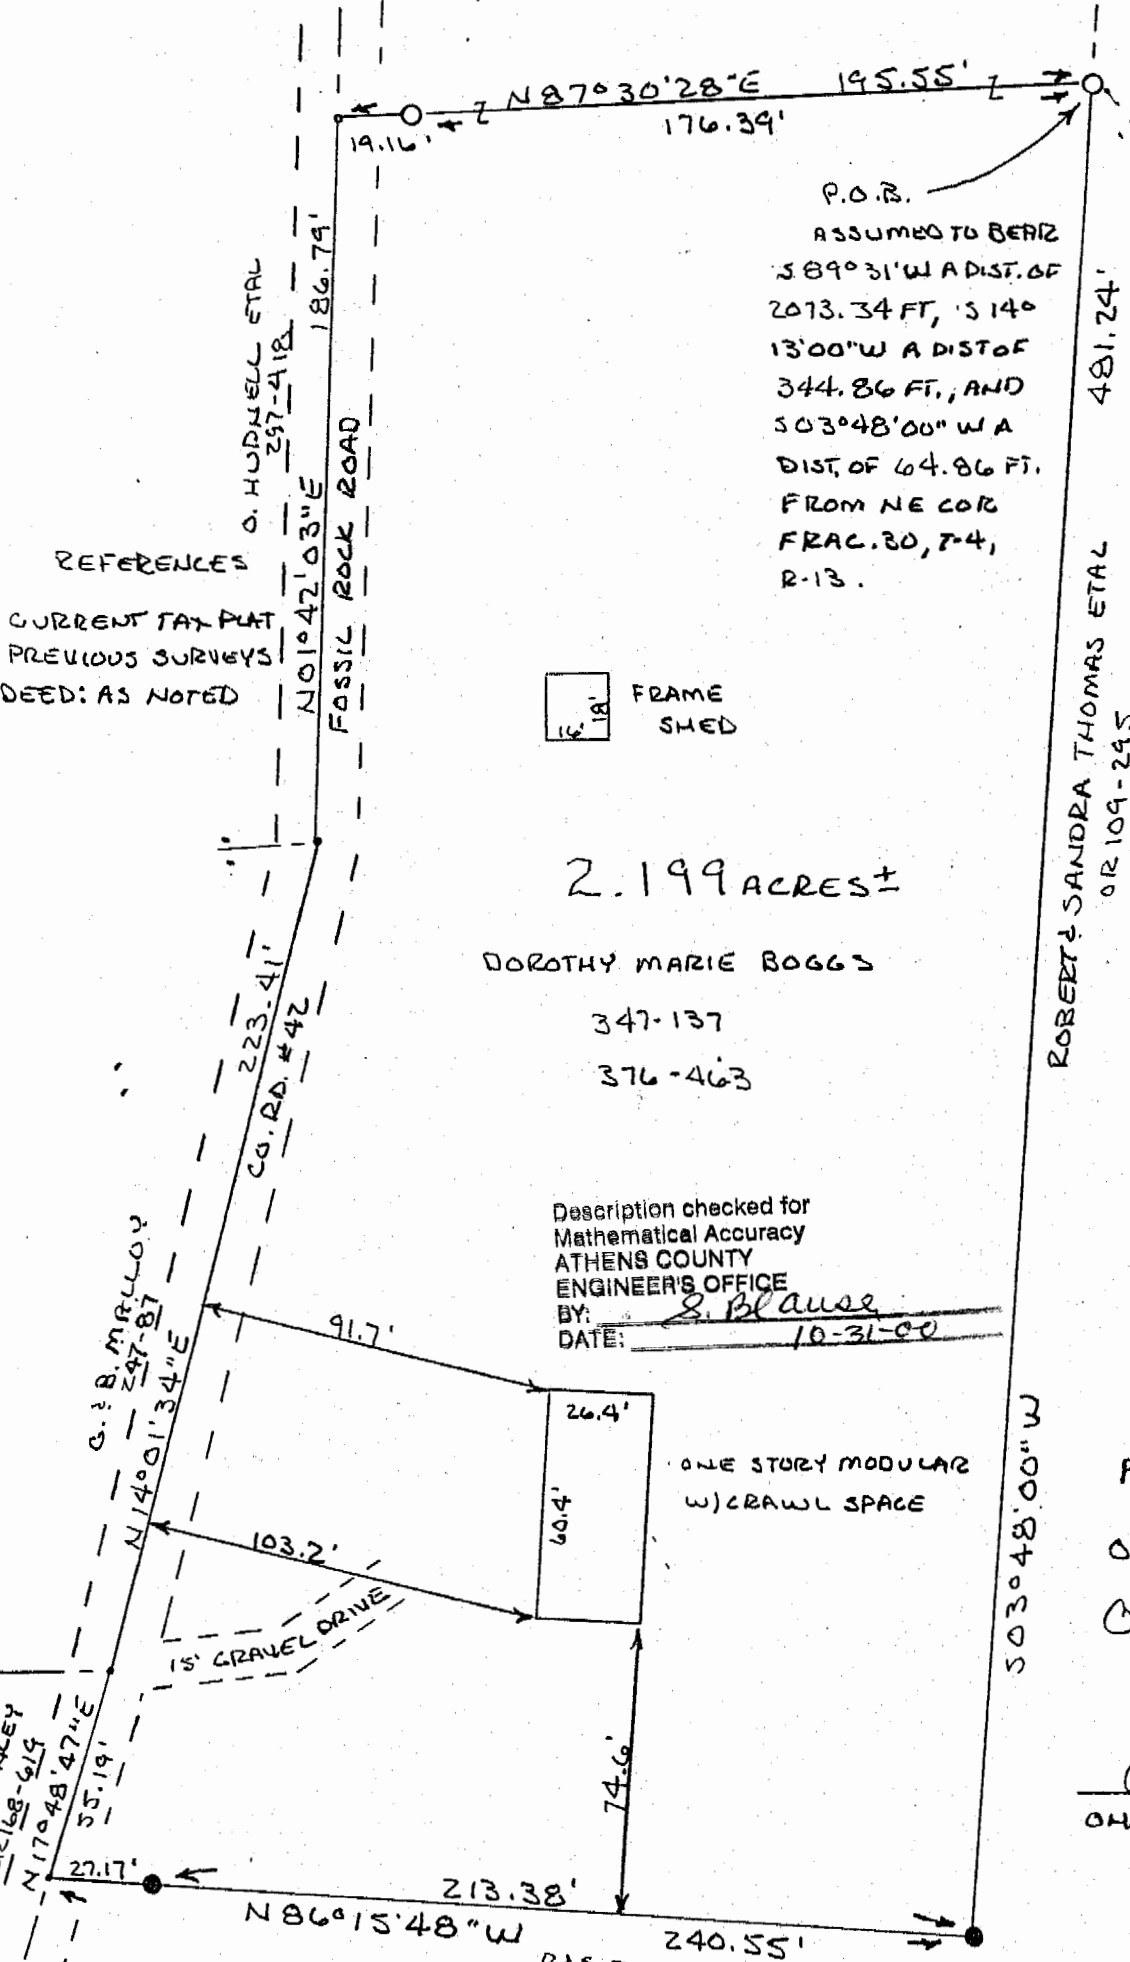 N87°30'28"E 195.55'
19.16'
176.39'
P.O.B.
ASSUMED TO BEAR
S89°31'W A DIST. OF
2073.34 FT, S 14°
13'00"W A DIST OF
344.86 FT., AND
S03°48'00" W A
DIST. OF 64.86 FT.
FROM NE COR
FRAC.30, T-4,
R-13.
186.79'
N01°42'03"E
O. HUDNELL ETAL
257-418
FOSSIL ROCK ROAD
481.24'
REFERENCES
CURRENT TAX PLAT
PREVIOUS SURVEYS
DEED: AS NOTED
16' 18'
FRAME
SHED
ROBERT & SANDRA THOMAS ETAL
OR 109-295
2.199 ACRES±
DOROTHY MARIE BOGGS
347-137
376-463
223.41'
CO. RD. #42
Description checked for
Mathematical Accuracy
ATHENS COUNTY
ENGINEER'S OFFICE
BY: S. Blause
DATE: 10-31-00
G. & B. MALLOY
247-87
N14°01'34"E
91.7'
26.4'
60.4'
ONE STORY MODULAR
W/CRAWL SPACE
103.2'
15' GRAVEL DRIVE
S03°48'00"W
74.6'
N17°48'47"E
55.19'
27.17'
213.38'
N86°15'48"W 240.55'